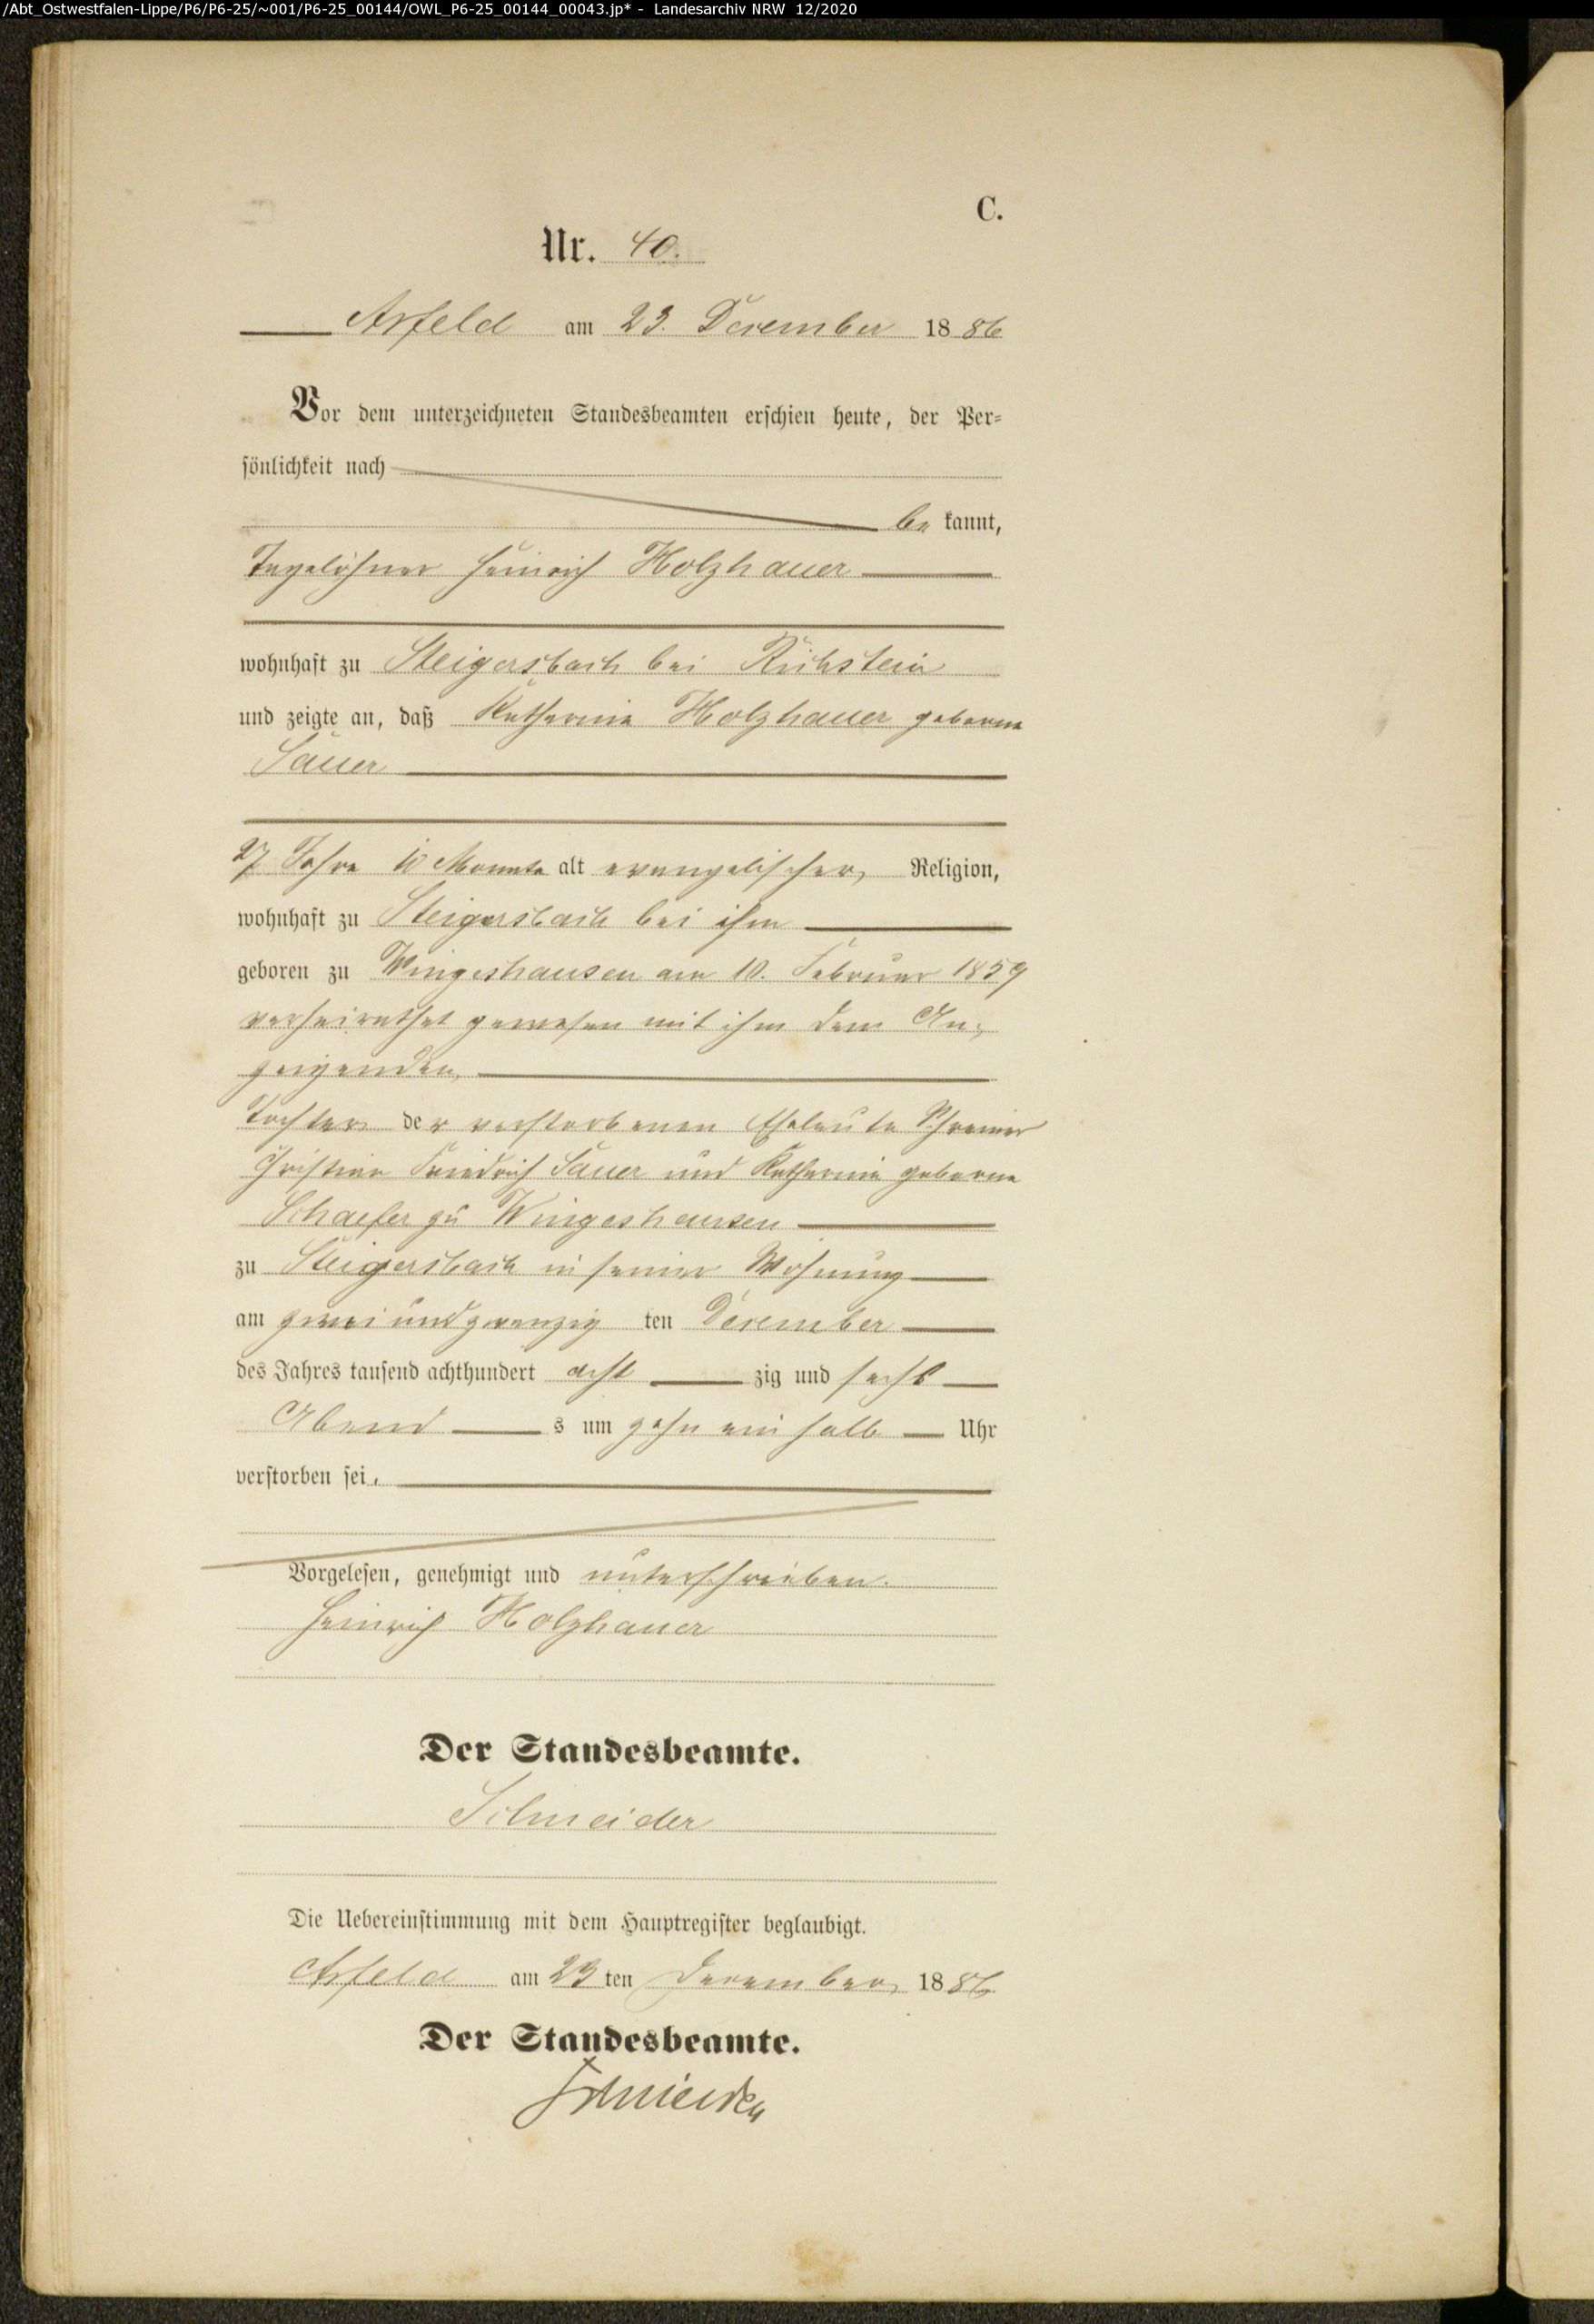 /Abt_Ostwestfalen-Lippe/P6/P6-25/~001/P6-25_00144/OWL_P6-25_00144_00043.jp* - Landesarchiv NRW 12/2020
C.
Nr. 40.
Arfeld am 23. December 1886
Vor dem unterzeichneten Standesbeamten erschien heute, der Per=
sönlichkeit nach
be kannt,
Tagelöhner Heinrich Holzhauer
wohnhaft zu Steigersbach bei Richstein
und zeigte an, daß Katharine Holzhauer geborne
Sauer
27 Jahre 10 Monate alt evangelischer Religion,
wohnhaft zu Steigersbach bei ihm
geboren zu Wingeshausen am 10. Februar 1859
verheirathet gewesen mit ihm dem An-
zeigenden,
Tochter der verstorbenen Eheleute Schreiner
Christian Friedrich Sauer und Katharine geborne
Schaefer zu Wingeshausen
zu Steigersbach in seiner Wohnung
am zwei und zwanzig ten December
des Jahres tausend achthundert acht zig und sechs
Abend s um zehn ein halb Uhr
verstorben sei.
Vorgelesen, genehmigt und unterschrieben.
Heinrich Holzhauer
Der Standesbeamte.
Schneider
Die Uebereinstimmung mit dem Hauptregister beglaubigt.
Arfeld am 23 ten December 1886
Der Standesbeamte.
Schneider